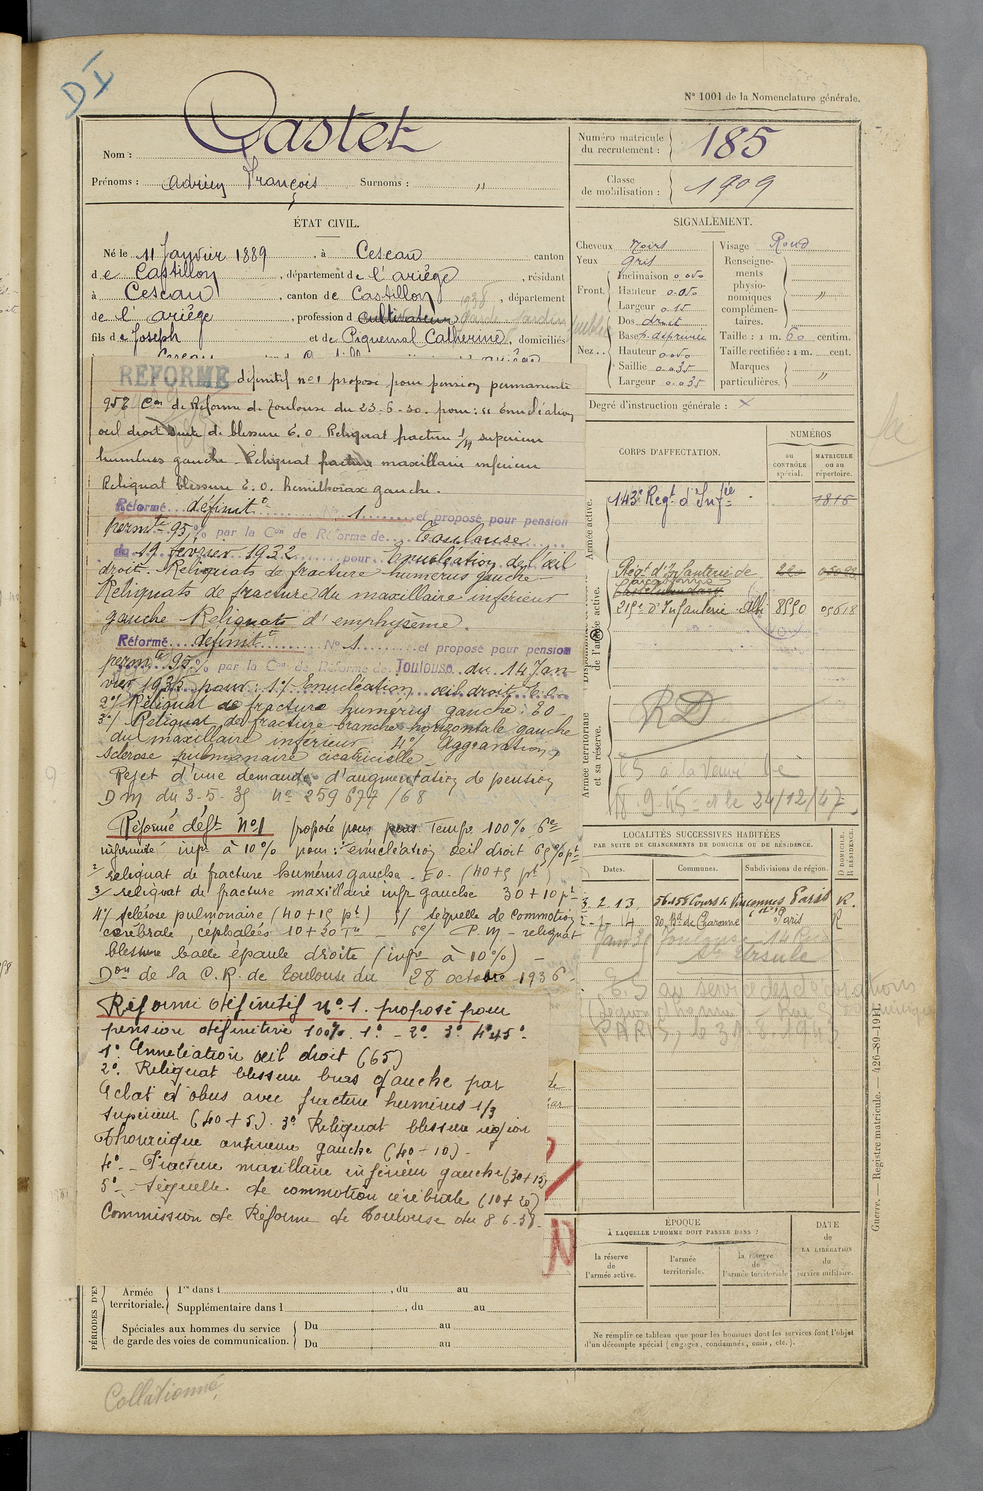 D I
N° 1001 de la Nomenclature générale.
Nom : Castet
Prénoms : Adrien François Surnoms : "
Numéro matricule du recrutement : 185
Classe de mobilisation : 1909
ÉTAT CIVIL.
Né le 11 Janvier 1889, à Cescau canton
de Castillon, département de l'ariège, résidant
à Cescau, canton de Castillon, département
de l'ariège, profession d cultivateur Garde Jardin public
fils de Joseph et de Piquemal Catherine, domiciliés
SIGNALEMENT.
Cheveux noirs
Yeux gris
Front Inclinaison
Hauteur
Largeur 0.15
Nez Dos droit
Base h. déprimée
Hauteur
Saillie 0.035
Largeur 0.035
Visage Rond
Renseignements physionomiques complémentaires. "
Taille : 1 m. 60 centim.
Taille rectifiée : 1 m. cent.
Marques particulières. "
Degré d'instruction générale : x
RÉFORMÉ définitif n°1 proposé pour pension permanente
95% Con de Réforme de Toulouse du 23-5-30. pour : Enucléation
oeil droit suite de blessure E.O. Reliquat fracture 1/4 supérieur
humérus gauche - Reliquat fracture maxillaire inférieur
Reliquat blessure E.O. hemithorax gauche.
Réformé définitt N° 1 et proposé pour pension
permte 95% par la Con de Réforme de Toulouse
du 19 fevrier 1932 pour Enucléation de l'œil
droit. Reliquats de fracture humérus gauche
Reliquats de fracture du maxillaire inférieur
gauche Reliquats d'emphysème.
Réformé definitt N° 1 et proposé pour pension
permte 95% par la Con de Réforme de Toulouse du 14 Jan
vier 1935 pour : 1°/ Enucléation œil droit E.O.
2°/ Reliquat de fracture humérus gauche : EO
3°/ Reliquat de fracture branche horizontale gauche
du maxillaire inférieur 4°/ Aggravation
sclérose pulmonaire cicatricielle.
Rejet d'une demande d'augmentation de pension
DM du 3-5-35 n° 259 674 /68
Réformé déft N°1 proposé pour pens Temp. 100% 6e
infirmité inf. à 10% pour : énucléation oeil droit 65% pt
2° reliquat de fracture humérus gauche - EO. (40+5 pt)
3° reliquat de fracture maxillaire infr gauche 30+10 pt
4°/ sclérose pulmonaire (40+15 pt) 5/ séquelle de commotion
cérébrale, cephalées 10+20 Tre - 6°/ P.M - reliquat
blessure balle épaule droite (infr à 10%) -
Don de la C.R. de Toulouse du 28 octobre 1936
Réformé définitif n° 1. proposé pour
pension définitive 100%. 1° - 2° 3° 4° 5°
1° Enucléation œil droit (65)
2° Reliquat blessure bras gauche par
éclat d'obus avec fracture humérus 1/3
supérieur (40+5). 3° Reliquat blessure région
thoracique antérieure gauche (40-10) -
4° - Fracture maxillaire inférieur gauche (30+15)
5° - Séquelle de commotion cérébrale (10+20)
Commission de Réforme de Toulouse du 8-6-38.
CORPS D'AFFECTATION.
NUMÉROS
au CONTRÔLE spécial.
MATRICULE ou au répertoire.
Armée active.
143e Regt d'Infie 1816
Disponibilité de l'armée active.
Régt d'Infanterie de
215e d'Infanterie Albi 8550 05618
Armée territoriale et sa réserve.
RD
ES à la Veuve le
18.9.45 et le 24/12/47
LOCALITÉS SUCCESSIVES HABITÉES
PAR SUITE DE CHANGEMENTS DE DOMICILE OU DE RÉSIDENCE.
Dates. Communes. Subdivisions de région. D DOMICILE. R RÉSIDENCE.
3.2.13. 56 Cours de Vincennes Paris R.
2-1-14 80 Bd de Charonne Paris R
Jan 35 Toulouse 14 Rue
Ste Ursule
E.S au service des Décorations
(Légion d'honneur)
PARIS, le
ÉPOQUE
À LAQUELLE L'HOMME DOIT PASSER DANS :
la réserve de l'armée active.
l'armée territoriale.
la réserve de l'armée territoriale
DATE de LA LIBÉRATION du service militaire.
Ne remplir ce tableau que pour les hommes dont les services font l'objet
d'un décompte spécial (engagés, condamnés, omis, etc.).
PÉRIODES D'EX
Armée territoriale. 1re dans l , du au
Supplémentaire dans l , du au
Spéciales aux hommes du service Du au
de garde des voies de communication. Du au
Guerre. — Registre matricule. — 426-89-1911.
Collationné